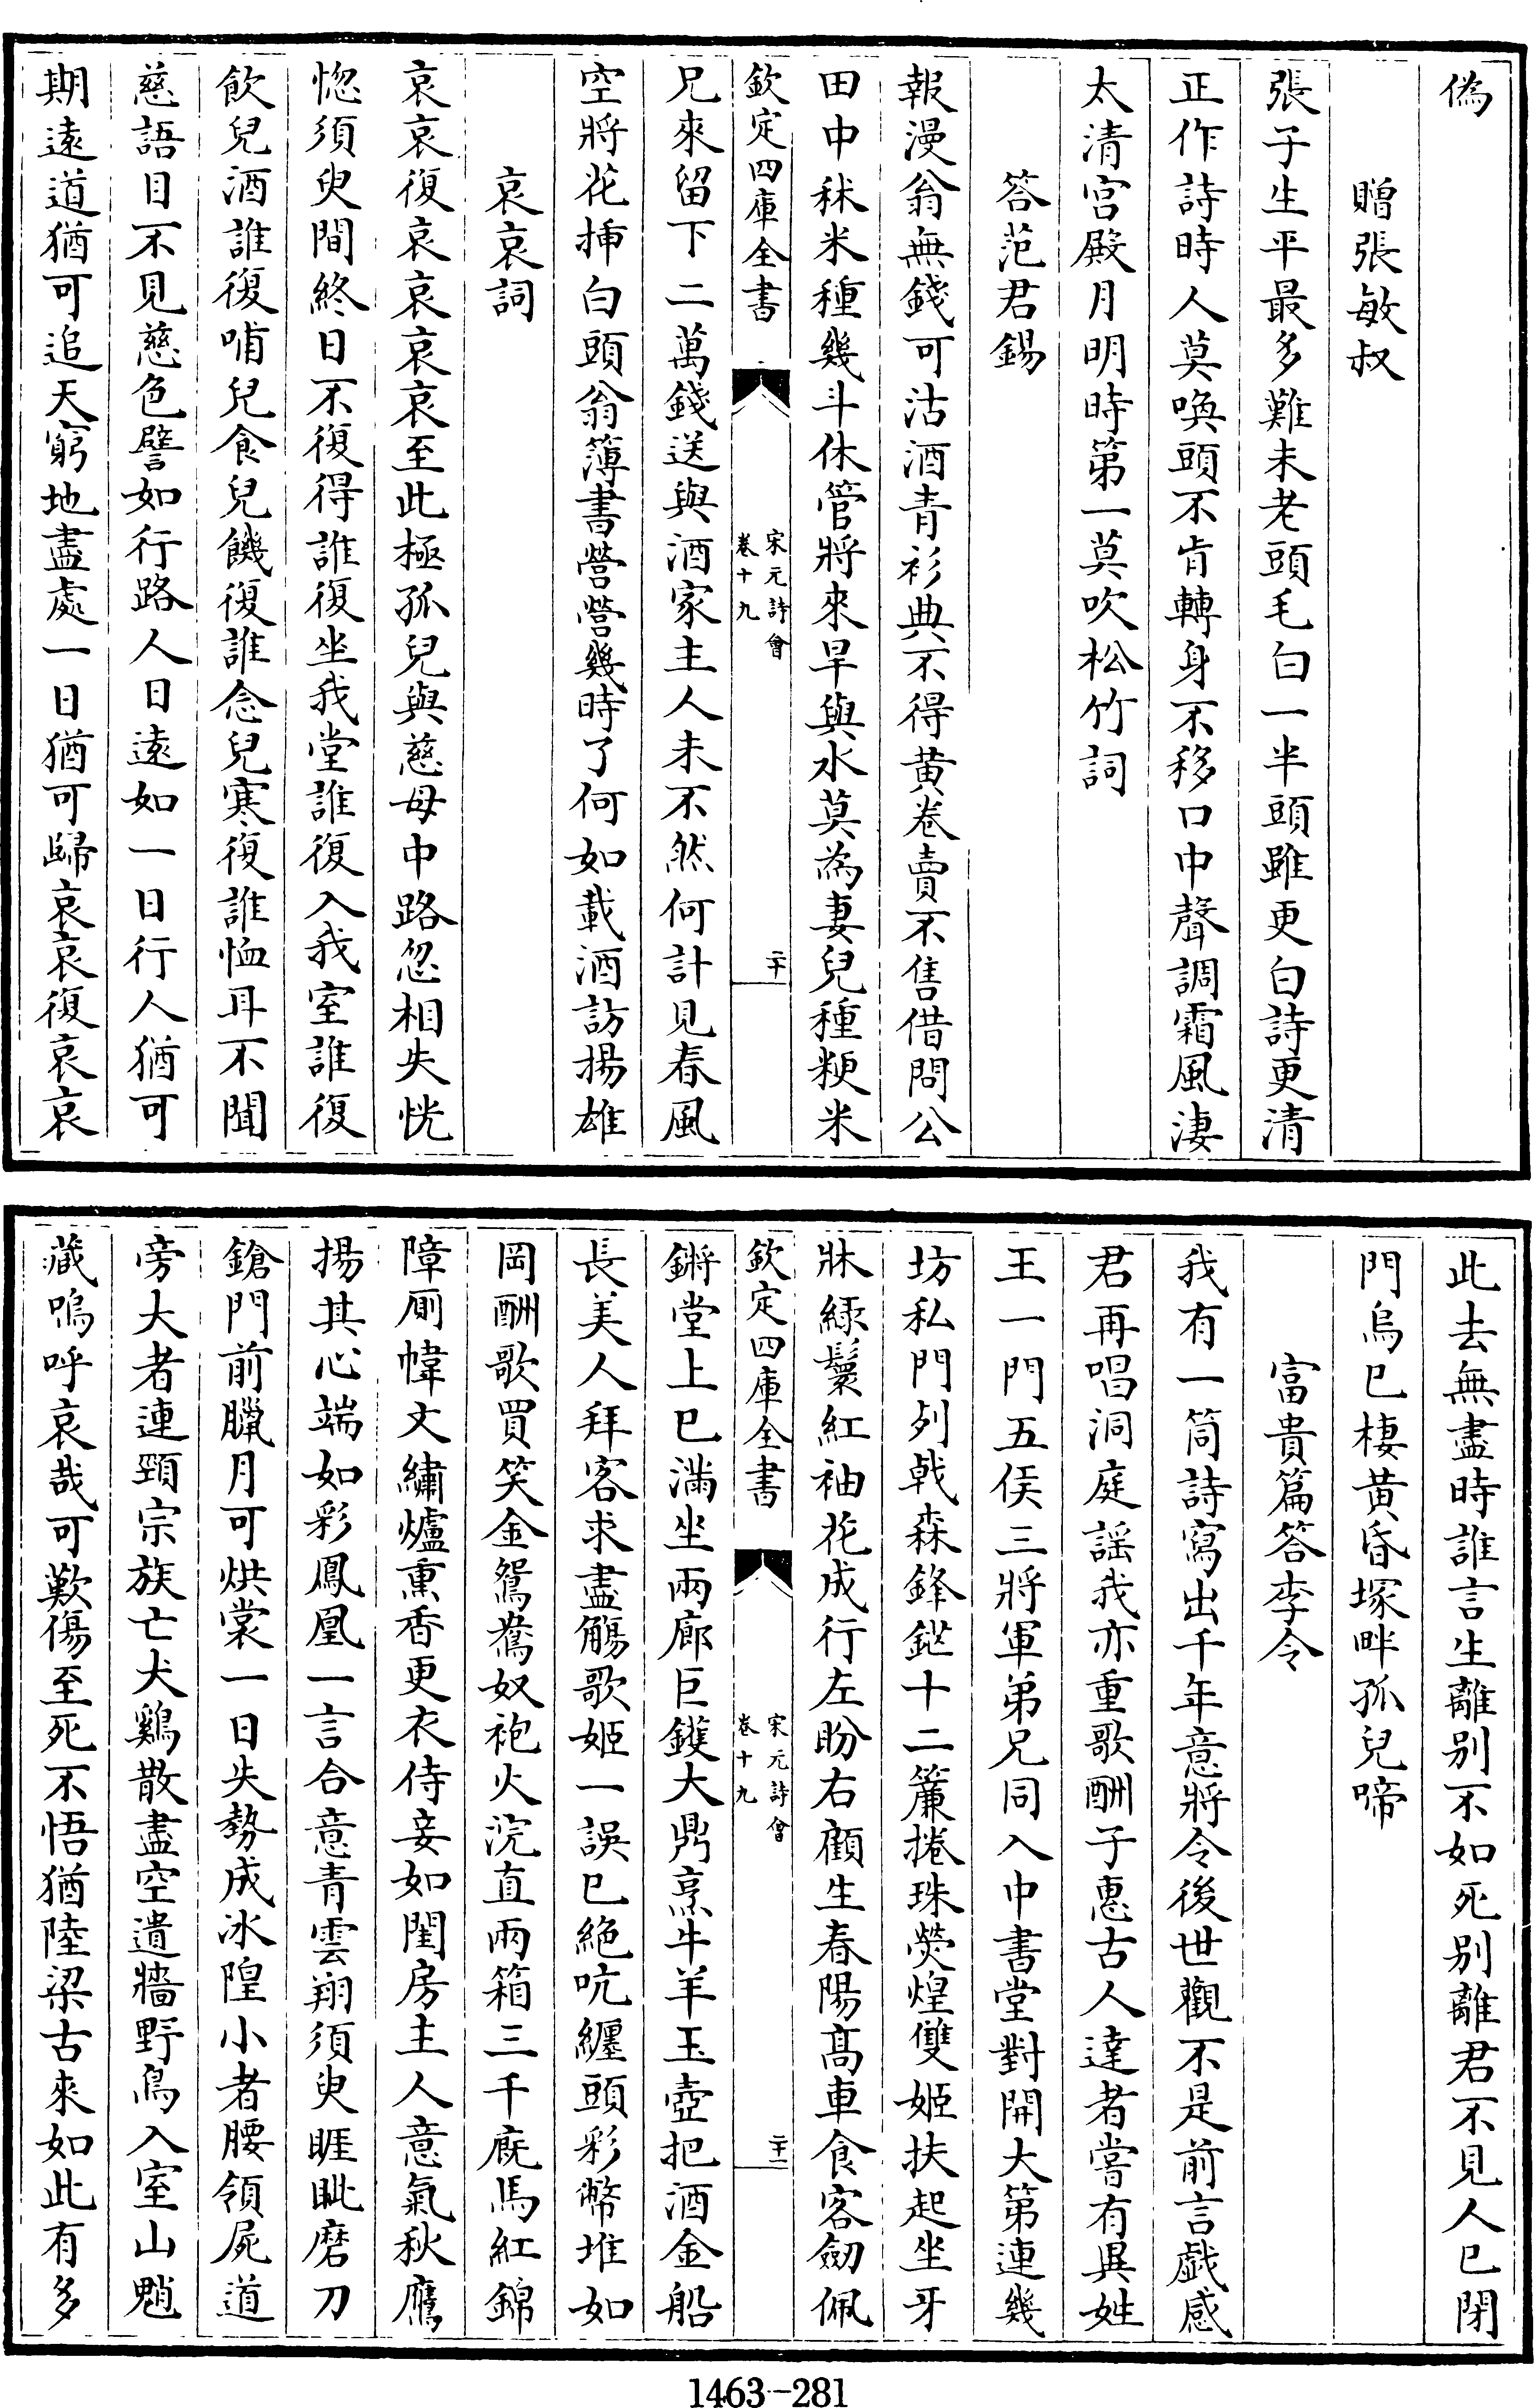 偽
贈張敏叔
張子生平最多難未老頭毛白一半頭雖更白詩更清
正作詩時人莫喚頭不肯轉身不移口中聲調霜風淒
太清宮殿月明時第一莫吹松竹詞
答范君錫
報漫翁無錢可沽酒青衫典不得黃卷賣不售借問公
田中秫米種幾斗休管將來旱與水莫為妻兒種粳米
欽定四庫全書
宋元詩會
卷十九
二十
兄來留下二萬錢送與酒家主人未不然何計見春風
空將花揷白頭翁簿書營營幾時了何如載酒訪揚雄
哀哀詞
哀哀復哀哀哀哀至此極孤兒與慈母中路忽相失恍
惚須臾間終日不復得誰復坐我堂誰復入我室誰復
飲兒酒誰復哺兒食兒饑復誰念兒寒復誰恤耳不聞
慈語目不見慈色譬如行路人日遠如一日行人猶可
期遠道猶可追天窮地盡處一日猶可歸哀哀復哀哀
此去無盡時誰言生離别不如死别離君不見人已閉
門烏已棲黃昏塚畔孤兒啼
富貴篇答李令
我有一筒詩寫出千年意將令後世觀不是前言戲感
君再唱洞庭謡我亦重歌酬子惠古人達者嘗有異姓
王一門五侯三將軍弟兄同入中書堂對開大第連幾
坊私門列戟森鋒鋩十二簾捲珠熒煌雙姬扶起坐牙
牀綠鬟紅袖花成行左盼右顧生春陽髙車食客劒佩
欽定四庫全書
宋元詩會
卷十九
二十一
鏘堂上已滿坐兩廊巨鑊大鼎烹牛羊玉壺把酒金船
長美人拜客求盡觴歌姬一誤已絶吭纒頭彩幣堆如
岡酬歌買笑金鴛鴦奴袍火浣直兩箱三千廐馬紅錦
障厠幃文繡爐熏香更衣侍妾如閨房主人意氣秋鷹
揚其心端如彩鳳凰一言合意青雲翔須臾睚眦磨刀
鎗門前臘月可烘裳一日失勢成冰隍小者腰領屍道
旁大者連頸宗族亡犬鷄散盡空遺牆野鳥入室山魈
藏嗚呼哀哉可歎傷至死不悟猶陸梁古來如此有多
1463-281